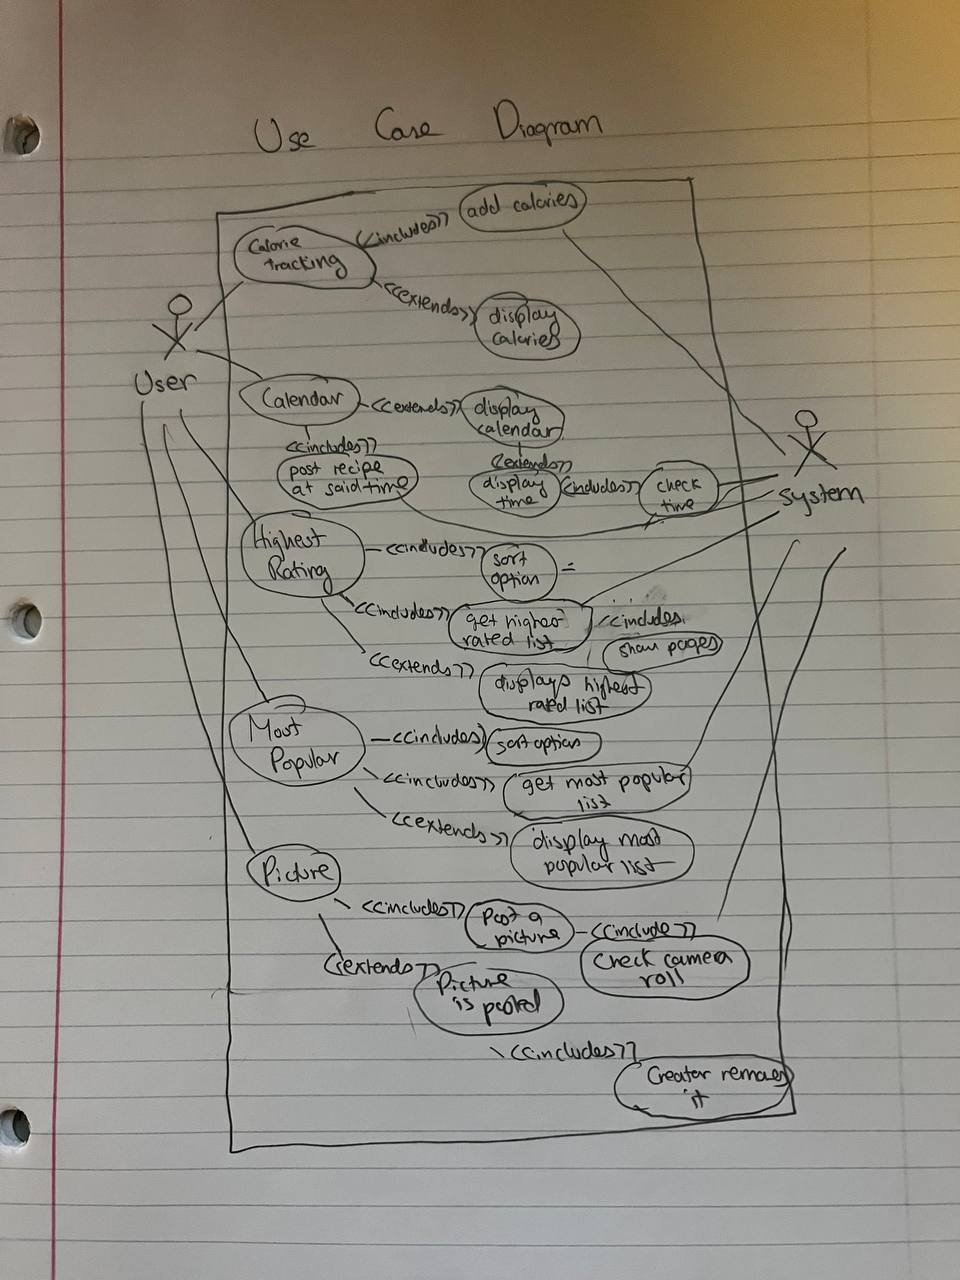 Use Case Diagram
add calories
<<includes>>
Calorie
tracking
<<extends>>
display
calories
User
Calendar
<<extends>>
display
calendar
<<includes>>
<<extends>>
post recipe
at said time
display
time
<<includes>>
check
time
system
Highest
Rating
<<includes>>
sort
option
<<includes>>
get higher
rated list
<<includes
show pages
<<extends>>
displays highest
rated list
Most
Popular
<<includes>>
sort option
<<includes>>
get most popular
list
<<extends>>
display most
popular list
Picture
<<includes>>
Post a
picture
<<include>>
Check camera
roll
<<extends>>
Picture
is posted
<<includes>>
Creator removes
it